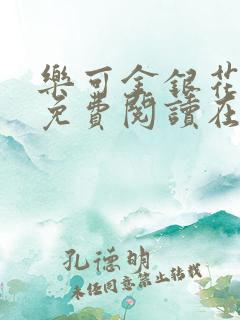 樂可金銀花
免費閱讀在
孔德明
未经同意禁止转载